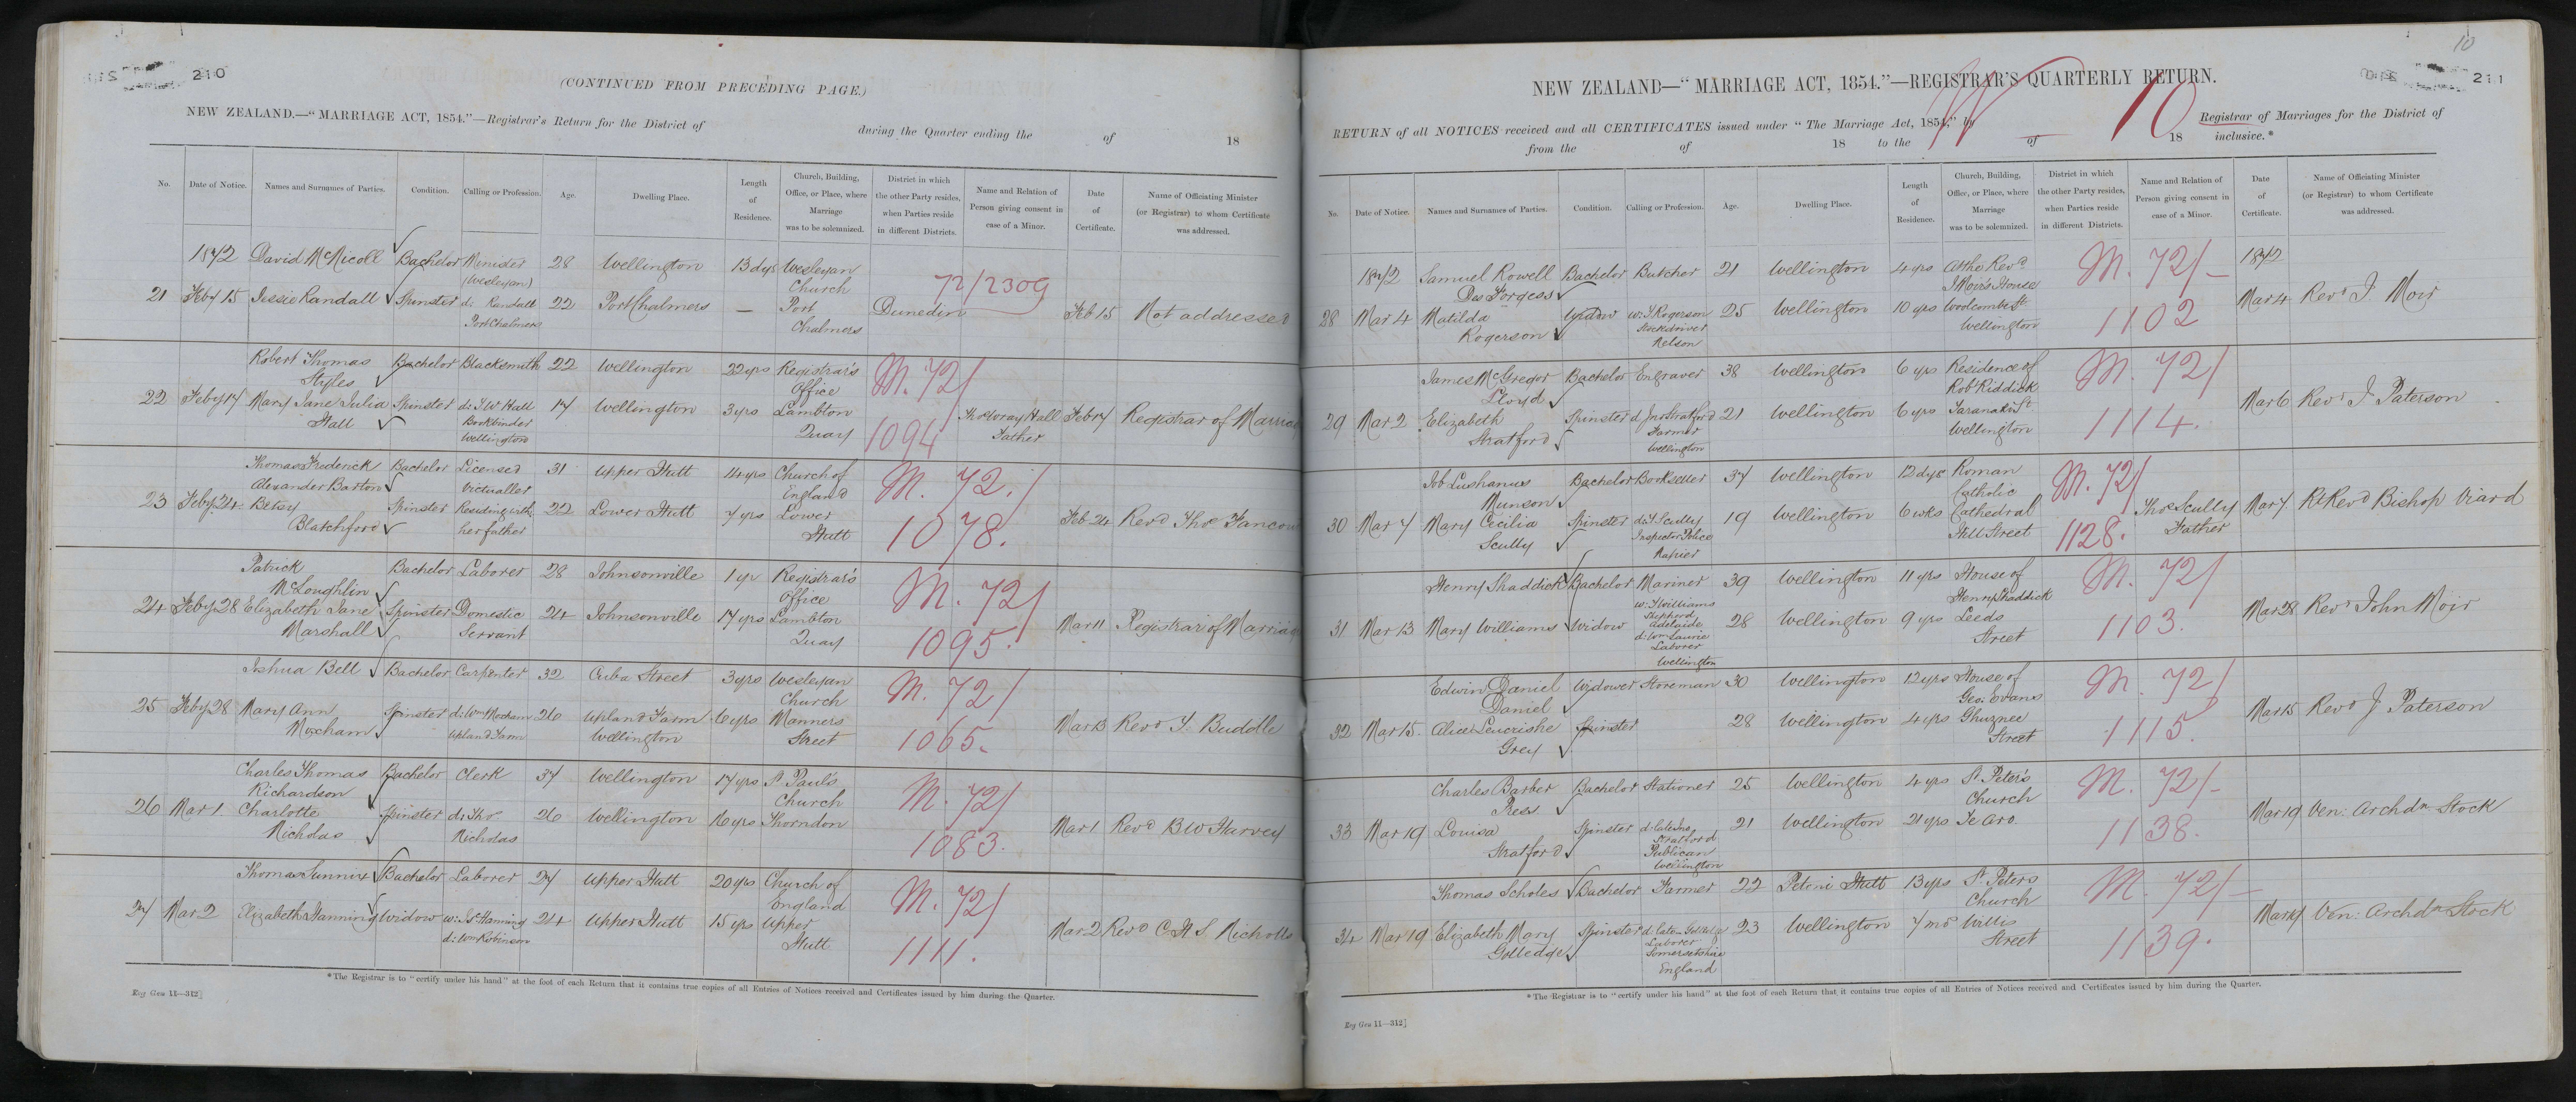 210
(CONTINUED FROM PRECEDING PAGE.)
NEW ZEALAND.—"MARRIAGE ACT, 1854."—Registrar's Return for the District of during the Quarter ending the of 18
No. Date of Notice. Names and Surnames of Parties. Condition. Calling or Profession. Age. Dwelling Place. Length of Residence. Church, Building, Office, or Place, where Marriage was to be solemnized. District in which the other Party resides, when Parties reside in different Districts. Name and Relation of Person giving consent in case of a Minor. Date of Certificate. Name of Officiating Minister (or Registrar) to whom Certificate was addressed.
1872 David McNicoll Bachelor Minister (Wesleyan) 28 Wellington 13 dys Wesleyan Church
72/2309
21 Feby 15 Jessie Randall Spinster d: Randall Port Chalmers 22 Port Chalmers — Port Chalmers Dunedin Feb 15 Not addressed
Robert Thomas Styles Bachelor Blacksmith 22 Wellington 22 yrs Registrar's Office
M. 72/
22 Feby 17 Mary Jane Julia Hall Spinster d: T W Hall Bookbinder Wellington 17 Wellington 3 yrs Lambton Quay
1094
Hall Father Feb 17 Registrar of Marriag
Thomas Frederick Alexander Barton Bachelor Licensed Victualler 31 Upper Hutt 14 yrs Church of England
M. 72./
23 Feby 24 Betsy Blatchford Spinster Residing with her father 22 Lower Hutt 7 yrs Lower Hutt
1078.
Feb 24 Revd Thos Fancou
Patrick McLoughlin Bachelor Laborer 28 Johnsonville 1 yr Registrar's Office
M. 72/
24 Feby 28 Elizabeth Jane Marshall Spinster Domestic Servant 24 Johnsonville 17 yrs Lambton Quay
1095.
Mar 11 Registrar of Marriag
Joshua Bell Bachelor Carpenter 32 Cuba Street 3 yrs Wesleyan Church
M. 72/
25 Feby 28 Mary Ann Moxham Spinster d: Wm Moxham Upland Farm 26 Upland Farm Wellington 6 yrs Manners Street
1065.
Mar 13 Revd T. Buddle
Charles Thomas Richardson Bachelor Clerk 37 Wellington 17 yrs St Paul's Church
M. 72/
26 Mar 1. Charlotte Nicholas Spinster d: Thos Nicholas 26 Wellington 16 yrs Thorndon
1083.
Mar 1 Revd B W Harvey
Thomas Sunnix Bachelor Laborer 27 Upper Hutt 20 yrs Church of England
M. 72/
27 Mar 2 Elizabeth Hanning Widow w: Js Hanning d: Wm Robinson 24 Upper Hutt 15 yrs Upper Hutt
1111.
Mar 2 Revd C H S Nicholls
*The Registrar is to "certify under his hand" at the foot of each Return that it contains true copies of all Entries of Notices received and Certificates issued by him during the Quarter.
Reg Gen 11—312]
10
211
NEW ZEALAND—"MARRIAGE ACT, 1854."—REGISTRAR'S QUARTERLY RETURN.
W 10
RETURN of all NOTICES received and all CERTIFICATES issued under "The Marriage Act, 1854," by Registrar of Marriages for the District of
from the of 18 to the of 18 inclusive.*
No. Date of Notice. Names and Surnames of Parties. Condition. Calling or Profession. Age. Dwelling Place. Length of Residence. Church, Building, Office, or Place, where Marriage was to be solemnized. District in which the other Party resides, when Parties reside in different Districts. Name and Relation of Person giving consent in case of a Minor. Date of Certificate. Name of Officiating Minister (or Registrar) to whom Certificate was addressed.
1872 Samuel Rowell Des Forgess Bachelor Butcher 21 Wellington 4 yrs At the Revd J Moir's House
M. 72/—
1872
28 Mar 4 Matilda Rogerson Widow w: T Rogerson Stockdriver Nelson 25 Wellington 10 yrs Woolcombe St Wellington
1102
Mar 4 Revd J. Moir
James McGregor Lloyd Bachelor Engraver 38 Wellington 6 yrs Residence of Robt Riddick
M. 72/
29 Mar 2 Elizabeth Stratford Spinster d Jno Stratford Farmer Wellington 21 Wellington 6 yrs Taranaki St Wellington
1114.
Mar 6 Revd J. Paterson
Job Lushanus Munson Bachelor Bookseller 37 Wellington 12 dys Roman Catholic
M. 72/
30 Mar 7 Mary Cecilia Scully Spinster d: T Scully Inspector Police Napier 19 Wellington 6 wks Cathedral Hill Street
1128.
Thos Scully Father Mar 7. Rt Revd Bishop Viard
Henry Shaddick Bachelor Mariner 39 Wellington 11 yrs House of Henry Shaddick
M. 72/
31 Mar 13 Mary Williams Widow w: T Williams Shepherd Adelaide d: Wm Laurie Laborer Wellington 28 Wellington 9 yrs Leeds Street
1103.
Mar 28 Revd John Moir
Edwin Daniel Daniel Widower Storeman 30 Wellington 12 yrs House of Geo: Evans
M. 72/
32 Mar 15. Alice Grey Spinster 28 Wellington 4 yrs Ghuznee Street
1115.
Mar 15 Revd J. Paterson
Charles Barber Press Bachelor Stationer 25 Wellington 4 yrs St Peter's Church
M. 72/—
33 Mar 19 Louisa Stratford Spinster d: late Jno Stratford Publican Wellington 21 Wellington 21 yrs Te Aro
1138.
Mar 19 Ven: Archdn Stock
Thomas Scholes Bachelor Farmer 22 Petoni Hutt 13 yrs St Peters Church
M. 72/—
34 Mar 19 Elizabeth Mary Golledge Spinster d: late Golledge Laborer Somersetshire England 23 Wellington 7 mos Willis Street
1139.
Mar 19 Ven: Archdn Stock
*The Registrar is to "certify under his hand" at the foot of each Return that it contains true copies of all Entries of Notices received and Certificates issued by him during the Quarter.
Reg Gen 11—312]